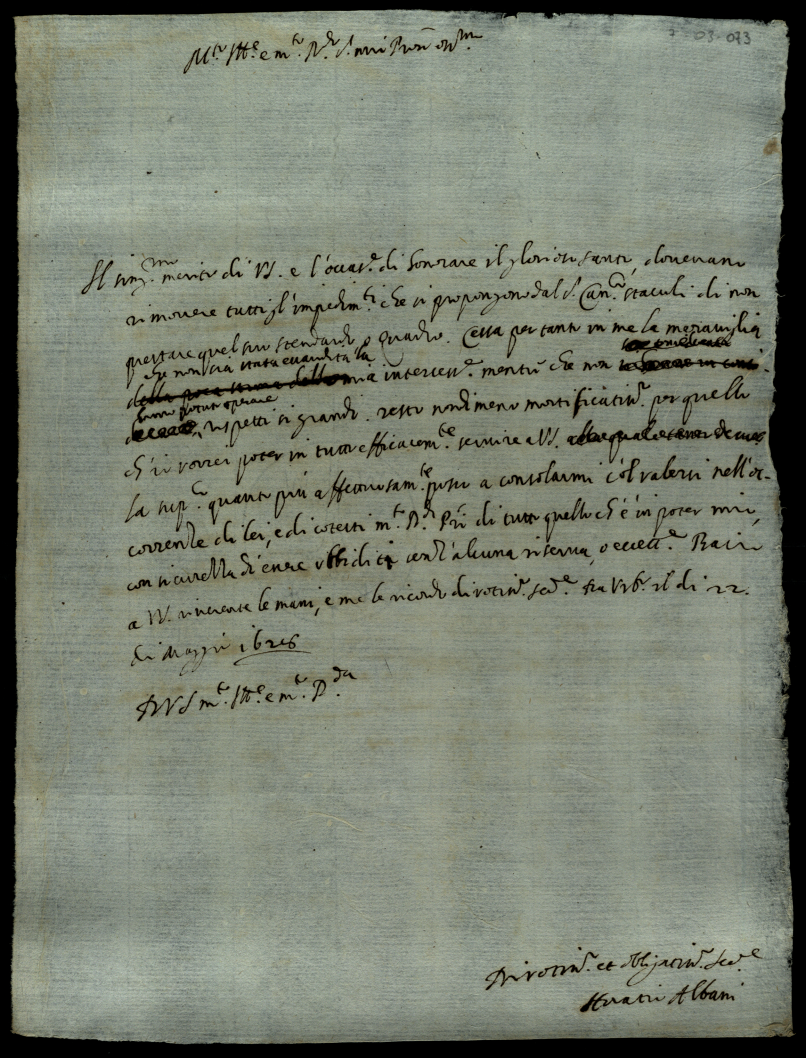 7-03-073
M.to Ill.re e m.to R.do S.r mio P.ron oss.mo
Il sing.mo merito di VS. e l'occas.e di honorare il glorioso santo, doveriano
rimovere tutti gl'impedim.ti che si propongono dal S.r Can.co Staculi di non
prestare quel suo stendardo, o quadro. Cessa per tanto in me la meraviglia
che non sia stata esaudita la
della poca stima della mia intercess.e mentre che non
hanno potuto operare
rispetti sì grandi. resto nondimeno mortificatiss.o per quello
ch'io vorrei poter in tutto efficacem.te servire a VS.
la sup.co quanto più affettuosam.te posso a consolarmi col valersi nell'oc-
correnze di lei, e di cotesti m.to R.di P.ri di tutto quello ch'è in poter mio,
con sicurezza d'essere ubbidita senz'alcuna riserva, o eccett.e Bacio
a VS. riverente le mani, e me le ricordo divotiss.o ser.e Da Urb.o il dì 22.
di Maggio 1626
Di VS m.to Ill.re e m.to R.da
Divotiss.o et obligatiss.o ser.e
Horatio Albani